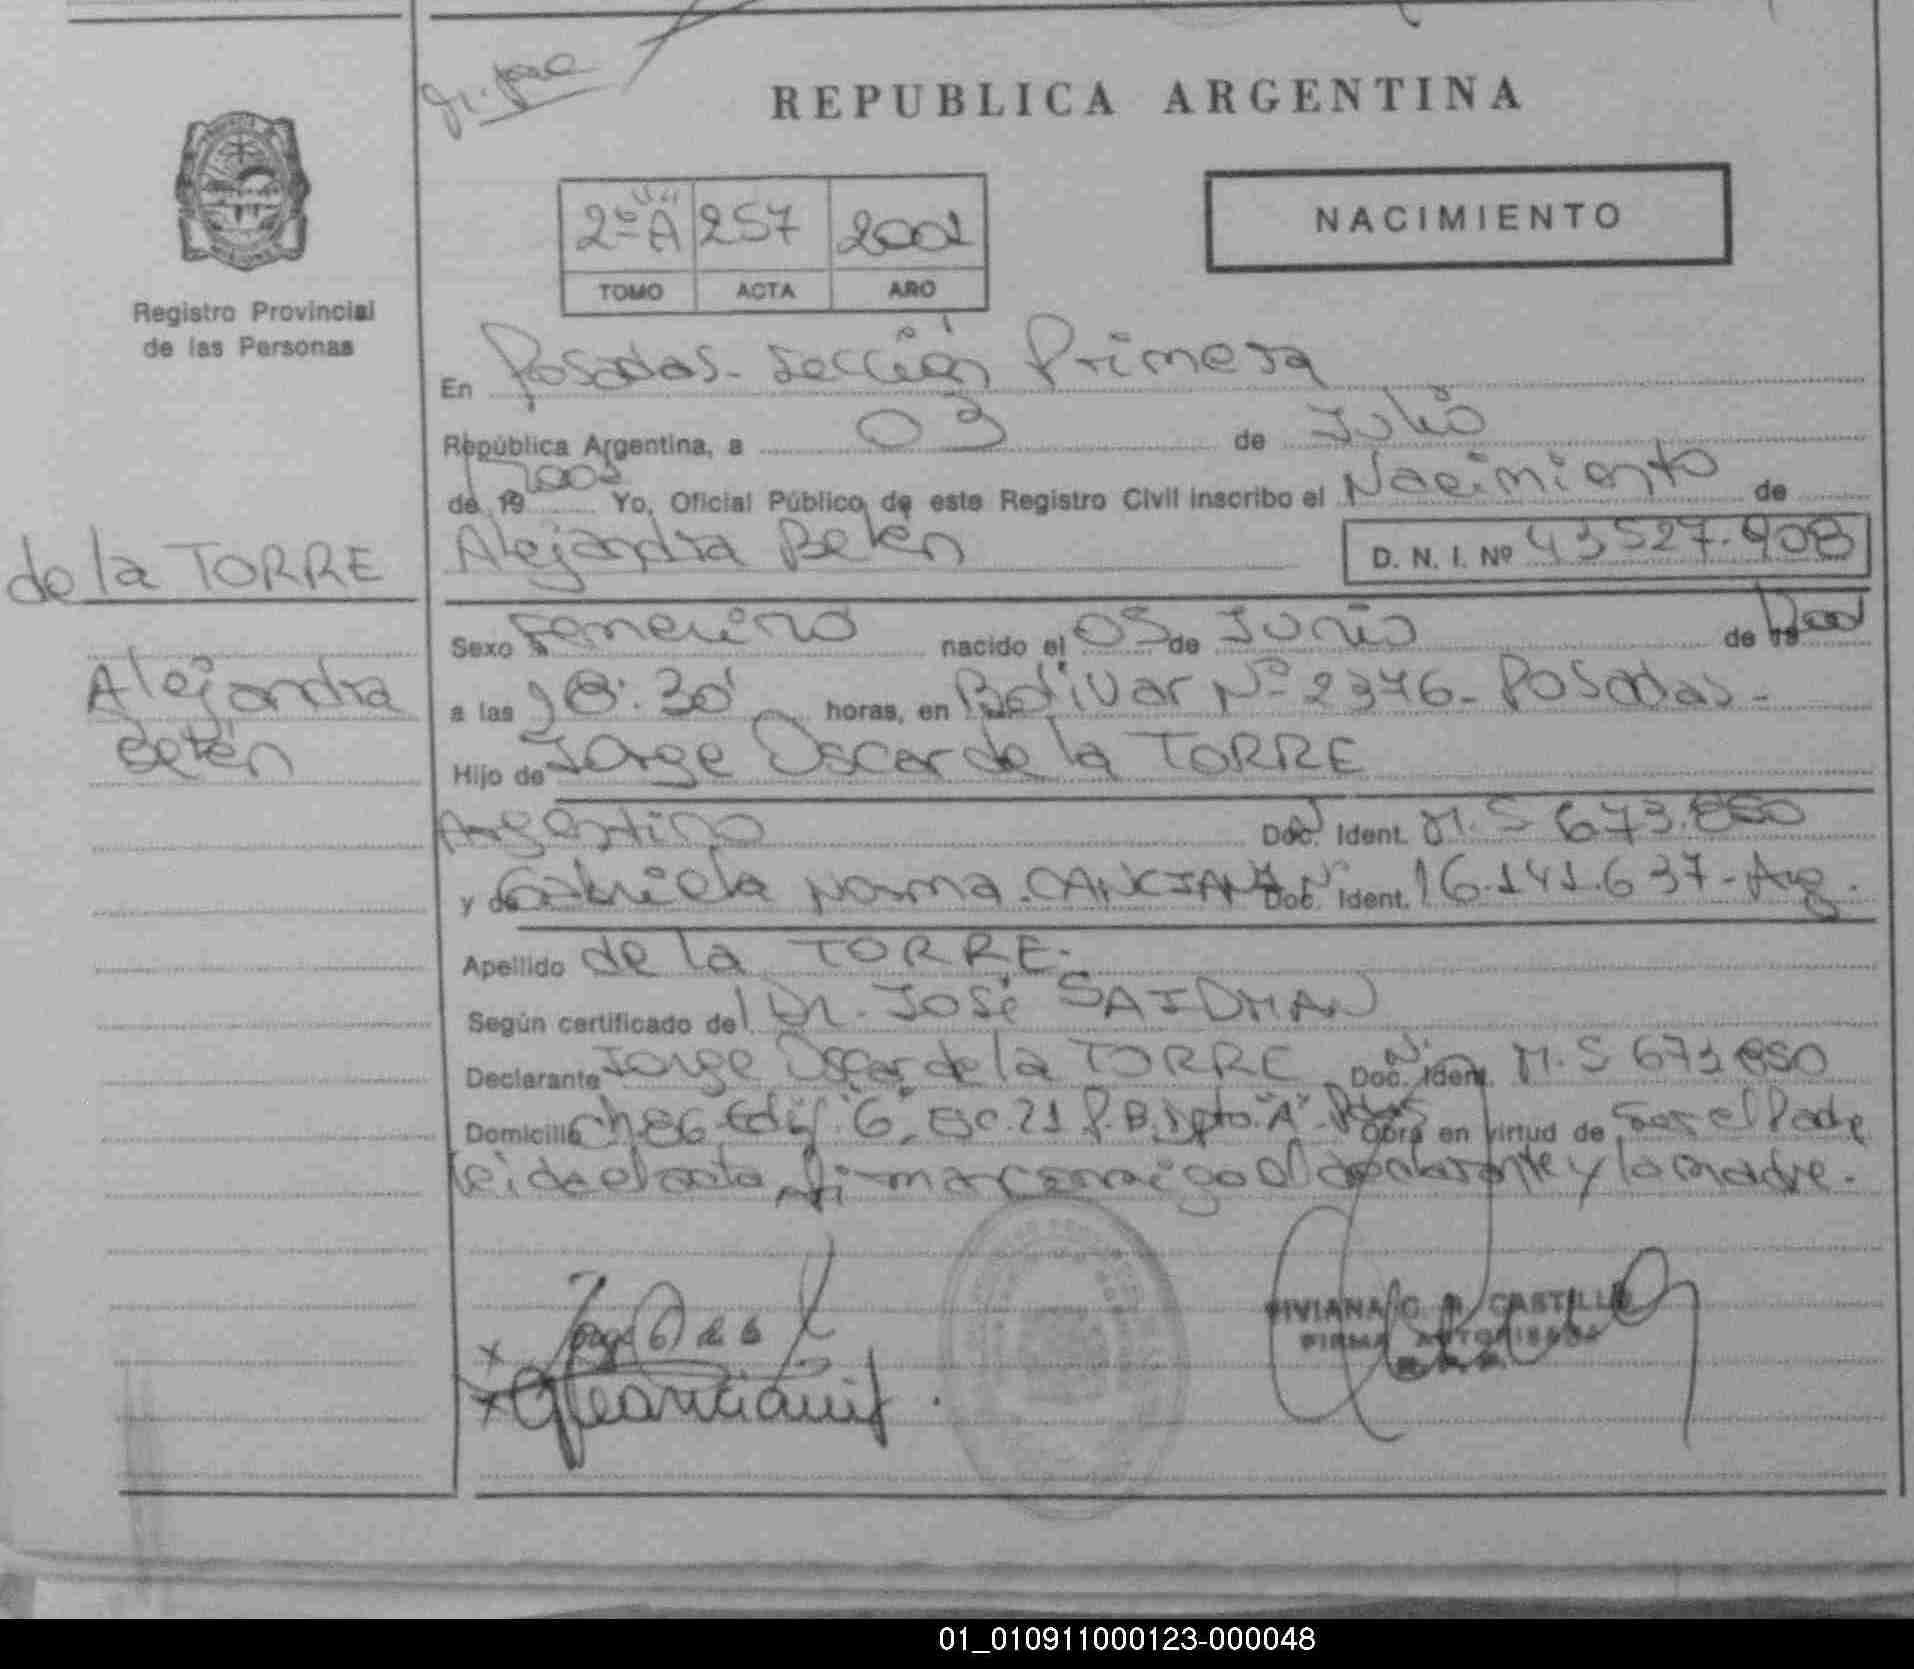 REPUBLICA ARGENTINA
2º "A" 257 2001
TOMO ACTA AÑO
NACIMIENTO
Registro Provincial
de las Personas
En Posadas - Sección Primera
República Argentina, a 03 de Julio
de 19 2001 Yo, Oficial Público de este Registro Civil inscribo el Nacimiento de
Alejandra Belén D. N. I. Nº 43527.908
de la TORRE
Alejandra
Belén
Sexo Femenino nacido el 05 de Junio de 19 2001
a las 18:30' horas, en Bolívar Nº 2376 - Posadas -
Hijo de Jorge Oscar de la TORRE
Argentino Doc. Ident. Nº M. 5 673.850
y de Gabriela Norma CANCIANI Doc. Ident. Nº 16.141.637 - Arg.
Apellido de la TORRE -
Según certificado del Dr. José SAIDMAN
Declarante Jorge Oscar de la TORRE Doc. Ident. Nº M. 5 673 850
Domicilio Ch. 86 Edif. "6" esc. 21 P.B. Dpto. "A" - Pdas Obra en virtud de Ser el Padre
leida el acta firman conmigo el declarante y la madre.
Jorge O de la
GCanciani
VIVIANA C. CASTILLO
FIRMA AUTORIZADA
01_010911000123-000048